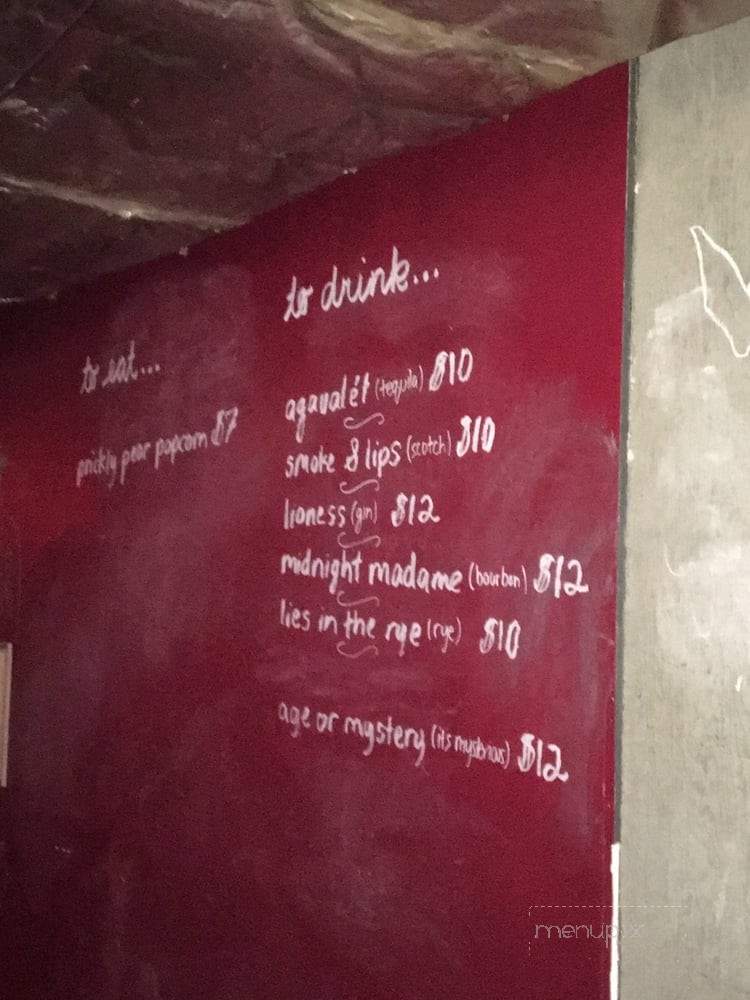 to eat...
prickly pear popcorn $7
to drink...
agavalét (tequila) $10
smoke & lips (scotch) $10
lioness (gin) $12
midnight madame (bourbon) $12
lies in the rye (rye) $10
age or mystery (its mysterious) $12
menupix